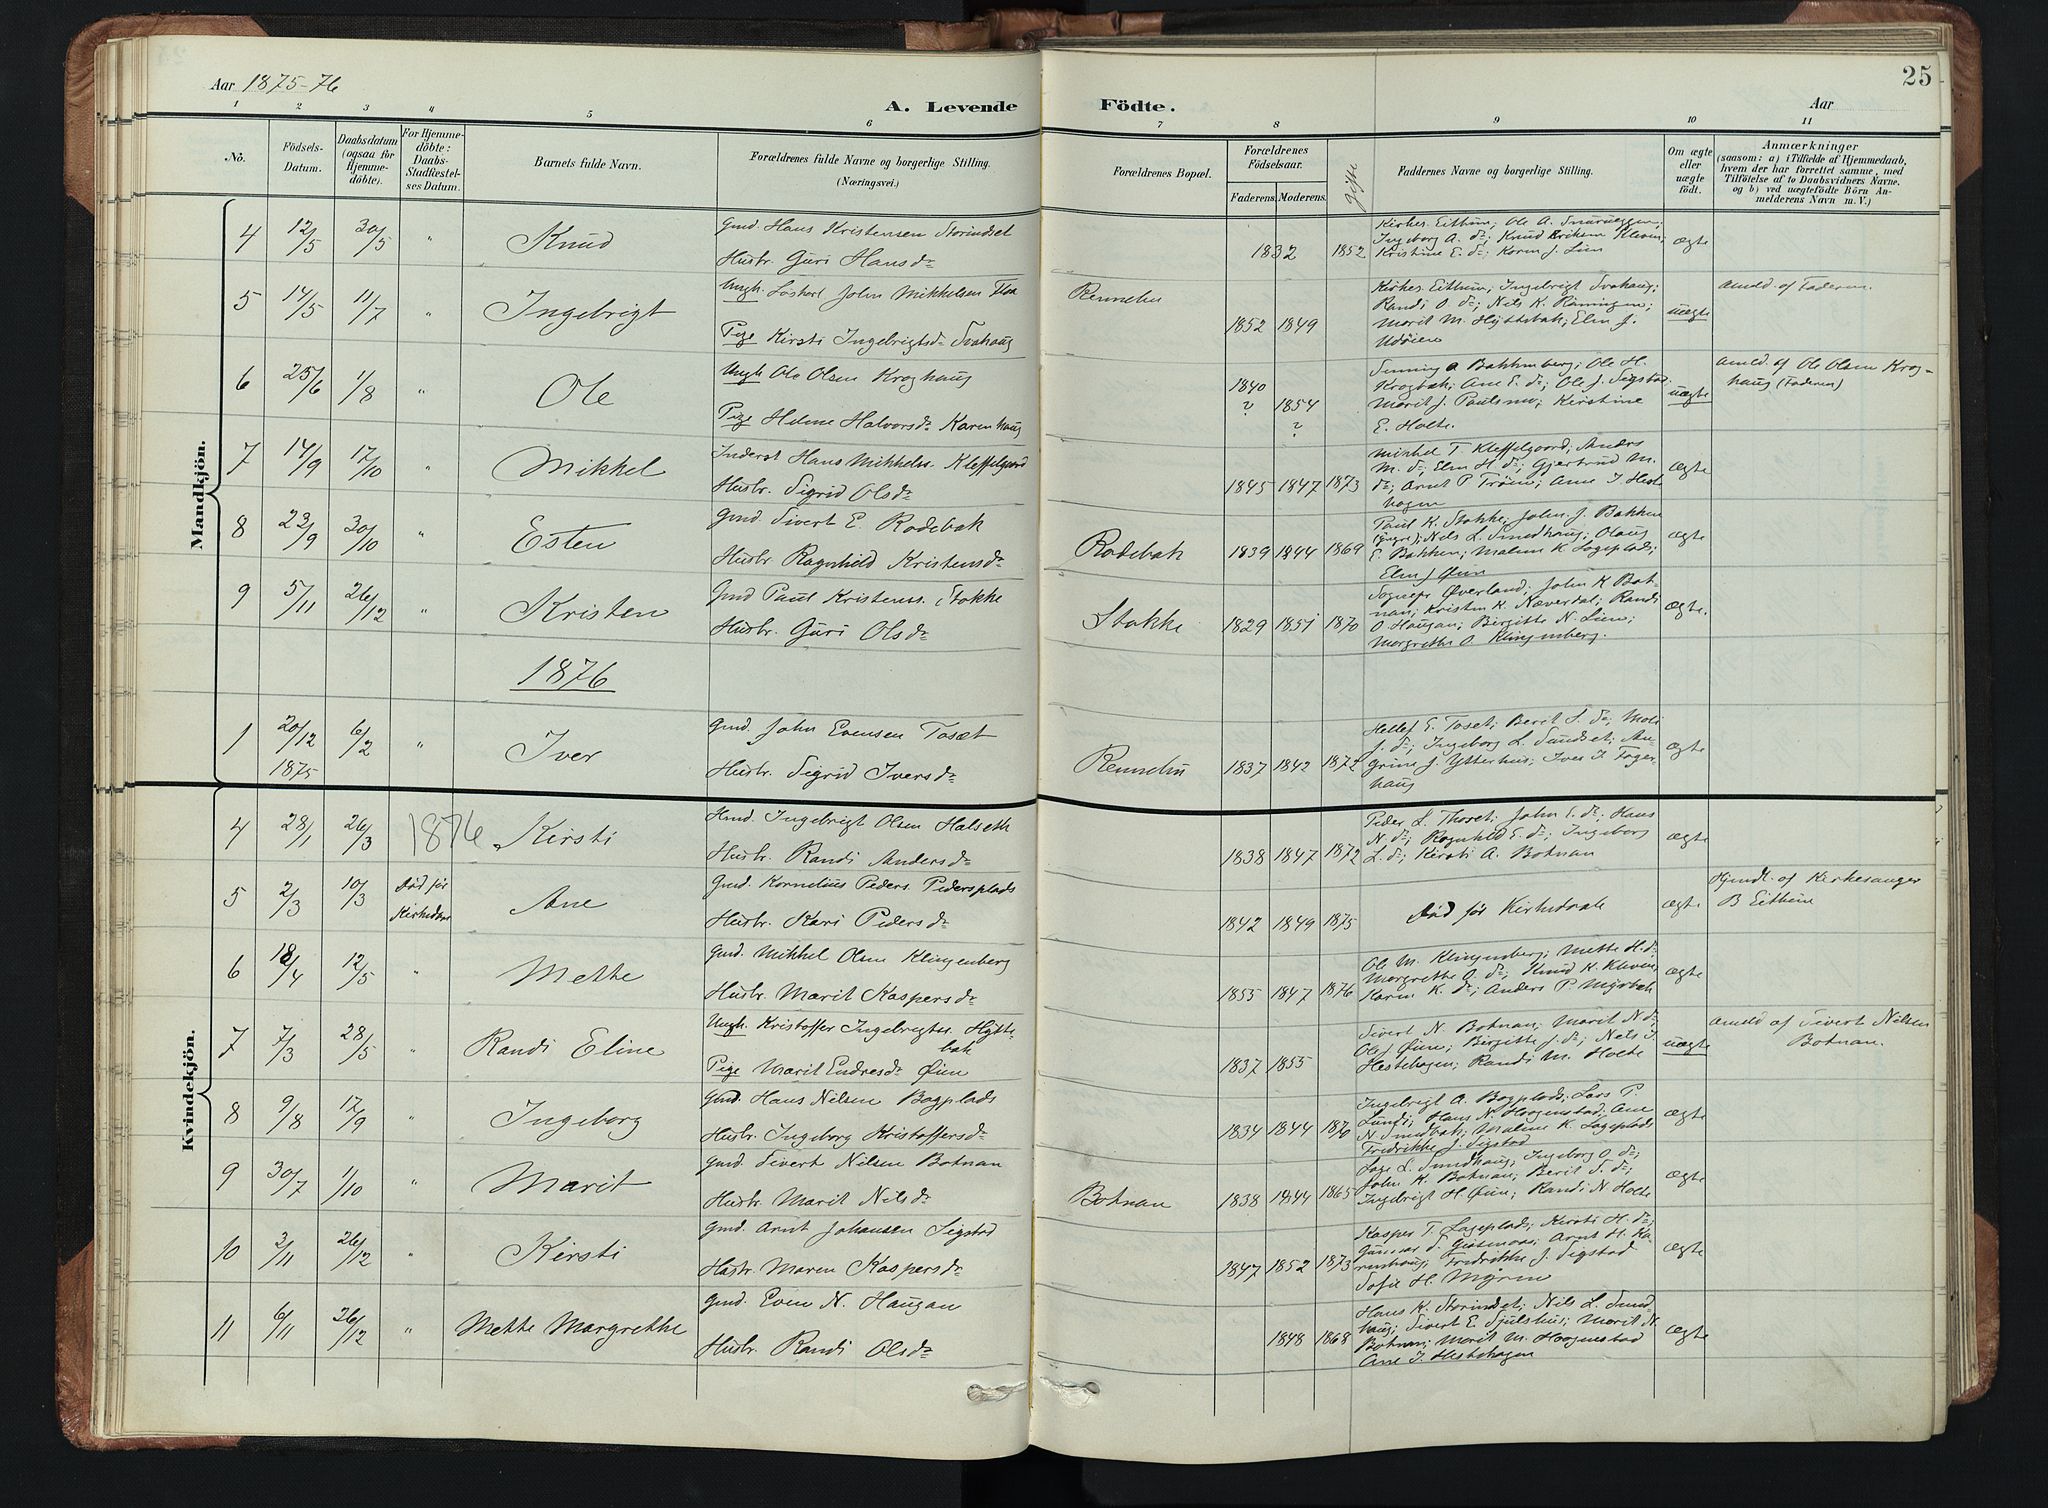 Aar 1875-76
A. Levende Födte.
25
Aar
1 2 3 4 5 6 7 8 9 10 11
No.
Födsels-Datum.
Daabsdatum (ogsaa for Hjemmedöbte).
For Hjemmedöbte: Daabs-Stadfæstelses Datum.
Barnets fulde Navn.
Forældrenes fulde Navne og borgerlige Stilling.
(Næringsvei.)
Forældrenes Bopæl.
Forældrenes Födselsaar.
Faderens. Moderens.
Gifte
Faddernes Navne og borgerlige Stilling.
Om ægte eller uægte födt.
Anmærkninger
(saasom: a) i Tilfælde af Hjemmedaab,
hvem der har forrettet samme, med
Tilföielse af to Daabsvidners Navne,
og b) ved uægtefödte Börn Anmelderens Navn m. V.)
Mandkjön.
4 12/5 30/5 " Knud
Gmd. Hans Kristensen Storindset
Husbr. Guri Hansdr
1832 1852
Kirkes. Eithun; Ole A. Snuruggen;
Ingeborg A. dr; Knud Eriksen Kleven;
Kristine E. dr; Karen J. Lien
ægte
5 14/5 11/7 " Ingebrigt
Ungk. Løskarl John Mikkelsen Floa
Pige Kirsti Ingebrigtsdr Svahaug
Rennebu
1852 1849
Kirkes. Eithun; Ingebrigt Svahaug;
Randi O. dr; Nils K. Ramingen;
Marit M. Hyttebak; Elen J.
Udøien
uægte
anmld. af Faderen.
6 25/6 1/8 " Ole
Ungk Ole Olsen Kroghaug
Pige Helene Halvorsdr Karenhaug
1840 ? 1854 ?
Krogbak; Ane E. dr; Ole J. Sigstad
Marit J. Paulsmo; Kirstine
E. Holte.
uægte
anmeld. af Ole Olsen Kroghaug (Faderen)
7 14/9 17/10 " Mikkel
Inderst Hans Mikkels. Kleffelgaard
Husbr. Sigrid Olsdr
1845 1847 1873
Mikkel T. Kleffelgaard; Anders
M. dr; Elen H dr; Gjertrud M.
dr; Arnt P Trøen; Ane I Hestehagen
ægte
8 23/9 30/10 " Esten
Gmd. Sivert E. Rodebak
Husbr Ragnhild Kristensdr
Rodebak
1839 1844 1869
Paul K. Stokke; John. J. Bakken
(yngre); Nils L. Smedhaug; Olaus
E. Bakken; Malene K. Lageplads;
Elen J Øien
ægte
9 5/11 26/12 " Kristen
Gmd Paul Kristens. Stokke
Husbr. Guri Olsdr
Stokke
1829 1851 1870
Sognepr Øverland; John K Botnan; Kristen K. Næverdal; Randi
O Haugan; Birgitte N. Lien;
Margrethe O. Klingenberg.
ægte.
1876
1 20/12 1875 6/2 " Iver
Gmd. John Evensen Tosæt
Husbr. Sigrid Iversdr
Rennebu
1837 1842 1872
Hellef E. Toset; Berit S. dr; Mali
J. dr; Ingeborg L. Sundset; Angrine J. Ytterhus; Iver I Fagerhaug
ægte
Kvindekjön.
4 28/1 26/3 1876 Kirsti
Gmd. Ingebrigt Olsen Halseth
Husbr. Randi Andersdr
1838 1847 1872
Peder L. Thoset; John E. dr; Hans
N. dr; Ragnhild E. dr; Ingeborg
L. dr; Kirsti A. Botnan
ægte
5 2/3 10/3 Død før Kirkedaab Ane
Gmd. Kornelius Peders. Pedersplads
Husbr. Kari Pedersdr
1842 1849 1875
Død før Kirkedaab
ægte
Hjmdt. af Kirkesanger
B Eithun
6 18/4 12/5 " Mette
Gmd. Mikkel Olsen Klingenberg
Husbr. Marit Kaspersdr
1855 1847 1876
Ole M. Klingenberg; Mette H. dr;
Margrethe O. dr; Knud K. Kleven;
Karen K. dr; Anders P. Myrbak
ægte
7 7/3 28/5 " Randi Eline
Ungk. Kristoffer Ingebrigts. Hyttebak
Pige Marit Endresdr Øien
1837 1855
Sivert N. Botnan; Marit N dr;
Ole J Øien; Birgitte J. dr; Nels I.
Hestehagen; Randi M. Holte
uægte
anmeld af Sivert Nilsen
Botnan.
8 9/8 17/9 " Ingeborg
Gmd. Hans Nilsen Bagplads
Husbr. Ingeborg Kristoffersdr
1834 1844 1870
Ingebrigt A. Bagplads; Lars P.
Lund; Hans N. Hoogenstad; Ane
N. Smedbak; Malene K. Lageplads
Fredrikke J. Sigstad
ægte
9 30/7 1/10 Marit
Gmd. Sivert Nilsen Botnan
Husbr. Marit Nilsdr
Botnan
1838 1844 1865
Lage L. Smedhaug; Ingeborg O. dr;
John K. Botnan; Berit S. dr;
Ingebrigt H. Øien; Randi N Holte
ægte
10 3/11 26/12 " Kirsti
Gmd. Arnt Johansen Sigstad
Husbr. Maren Kaspersdr
1847 1852 1873
Kasper T. Lageplads; Kirsti H. dr;
Arnt H. Karenhaug; Fredrikke J. Sigstad
Sofie H. Myren
ægte
11 6/11 26/12 " Mette Margrethe
Gmd. Even N. Haugan
Husbr. Randi Olsdr
1848 1868
Hans K. Storindset; Nils L. Smedhaug; Sivert E. Sjulshus; Marit N.
Botnan; Marit M. Hoogenstad
Ane I. Hestehagen
ægte